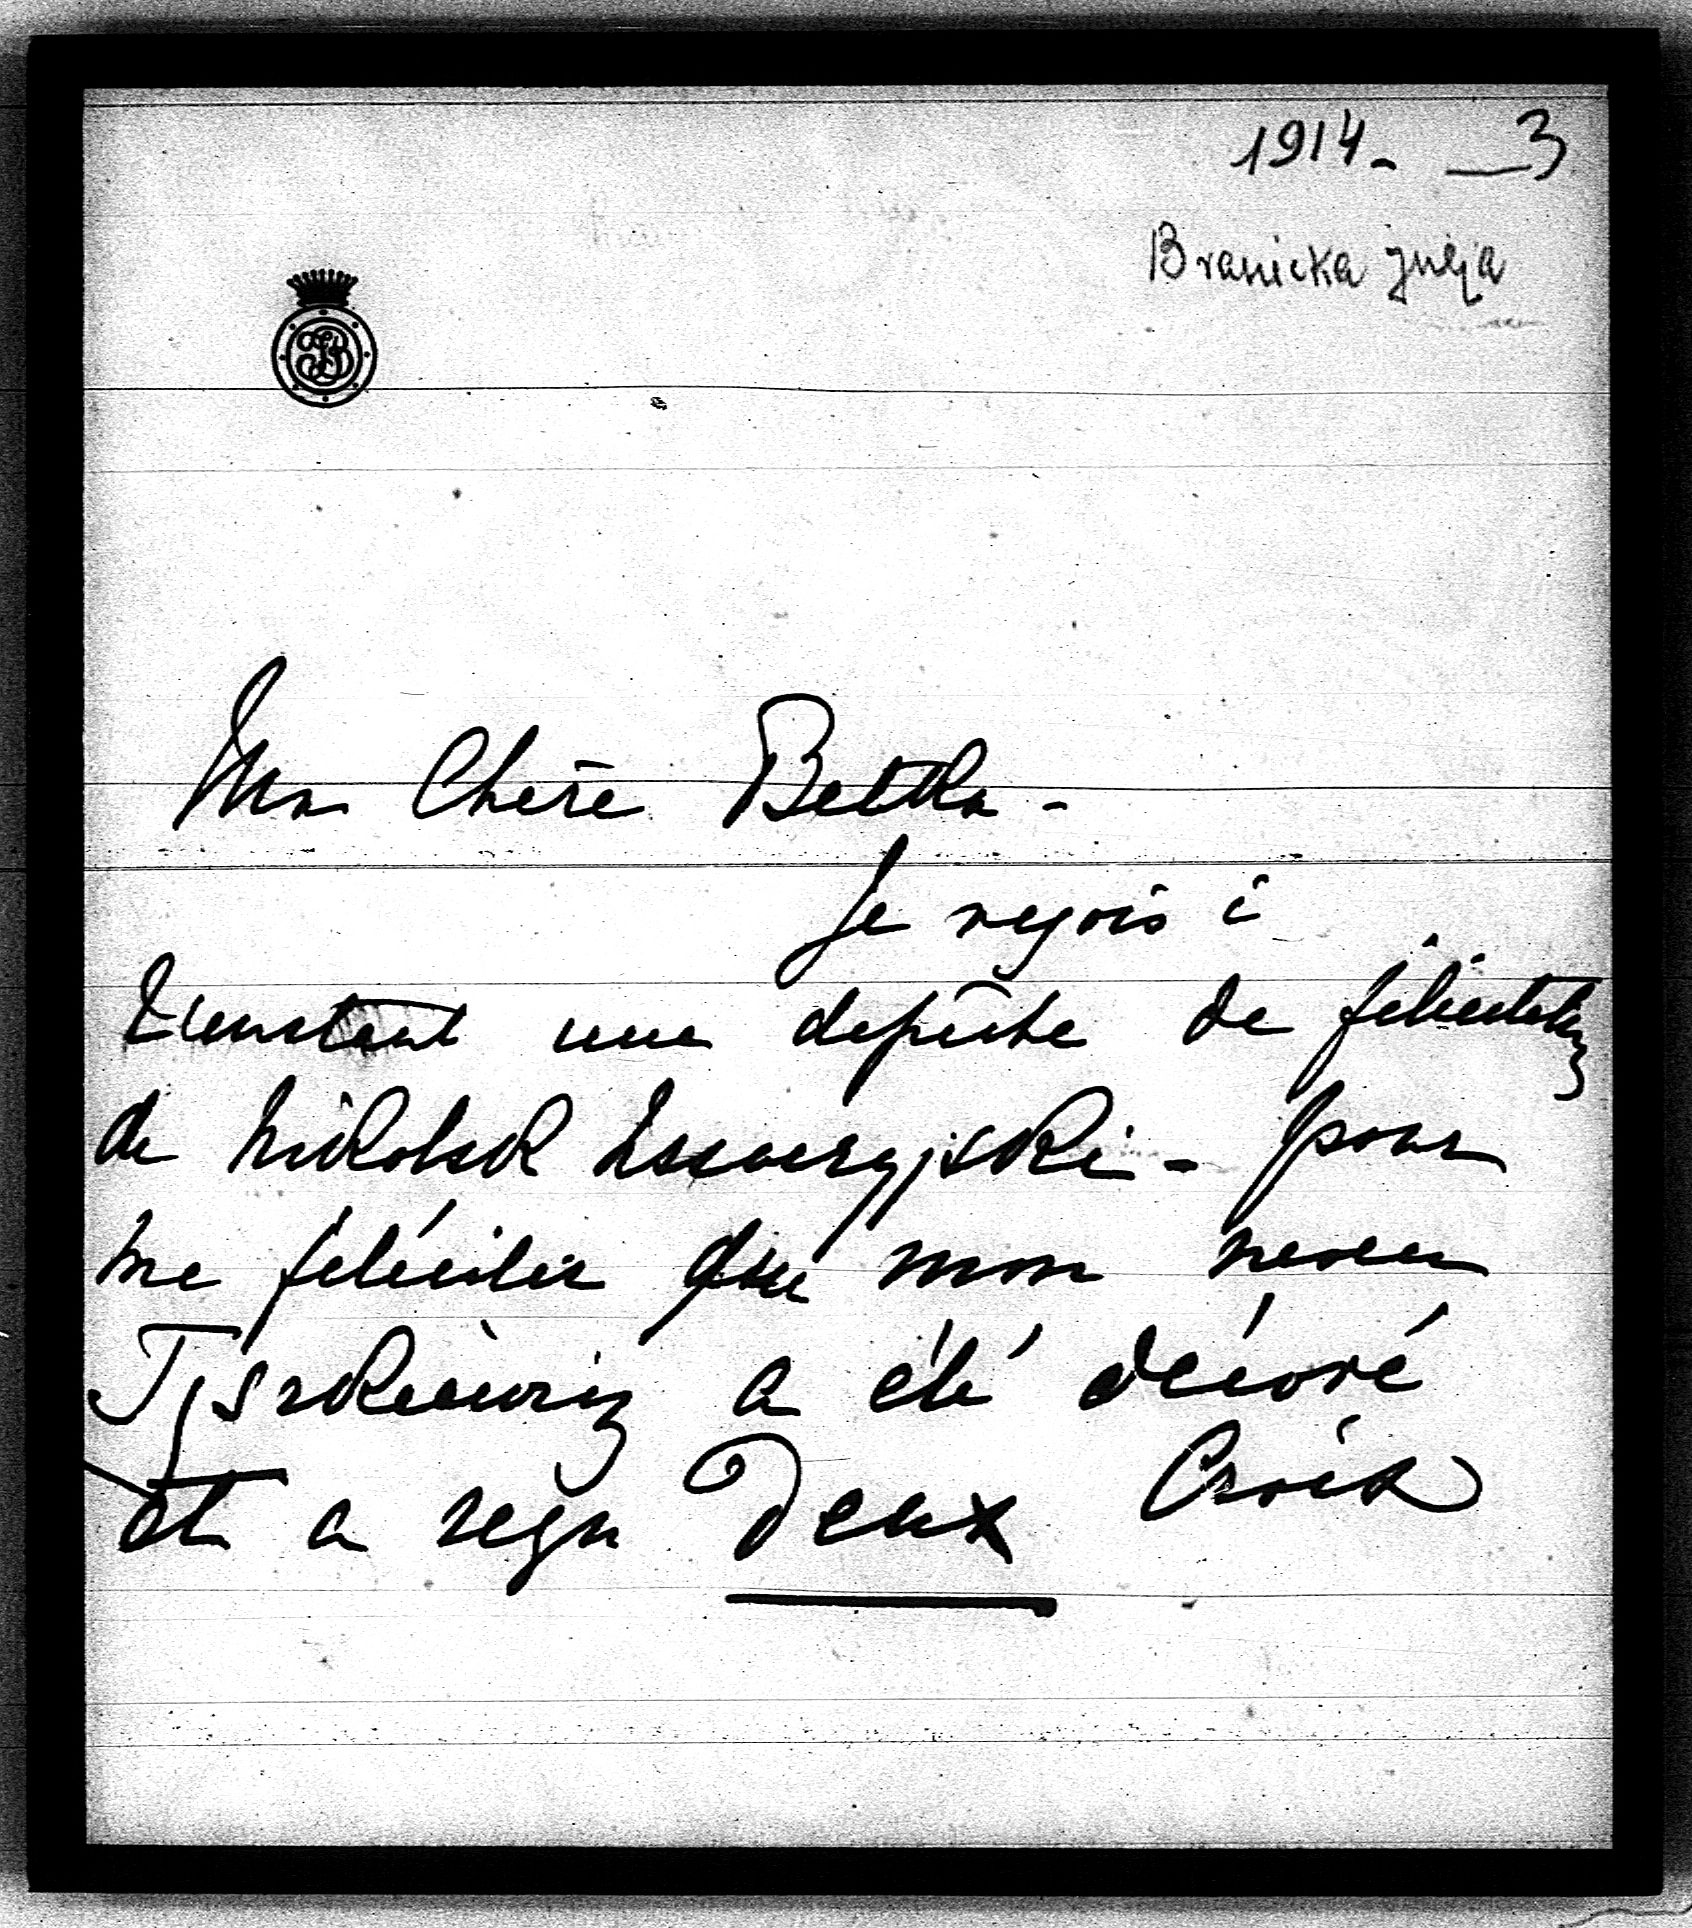 1914 - 3
Branicka Julja
JB
Ma Chère Betka -
Je reçois à
L'instant une depêche de félicitation
de Nikolsk Ussuryjski - pour
me féliciter que mon neveu
Tyszkiewicz a été décoré
et a reçu Deux Croix